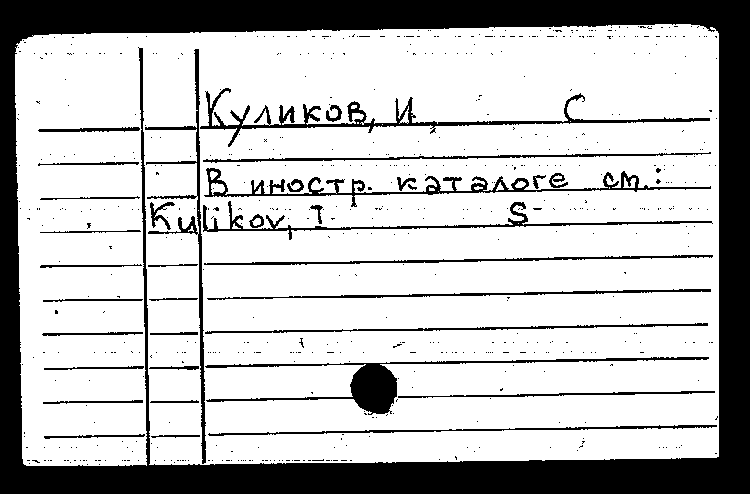 Куликов, И. С
В иностр. каталоге см.:
Kulikov, I S